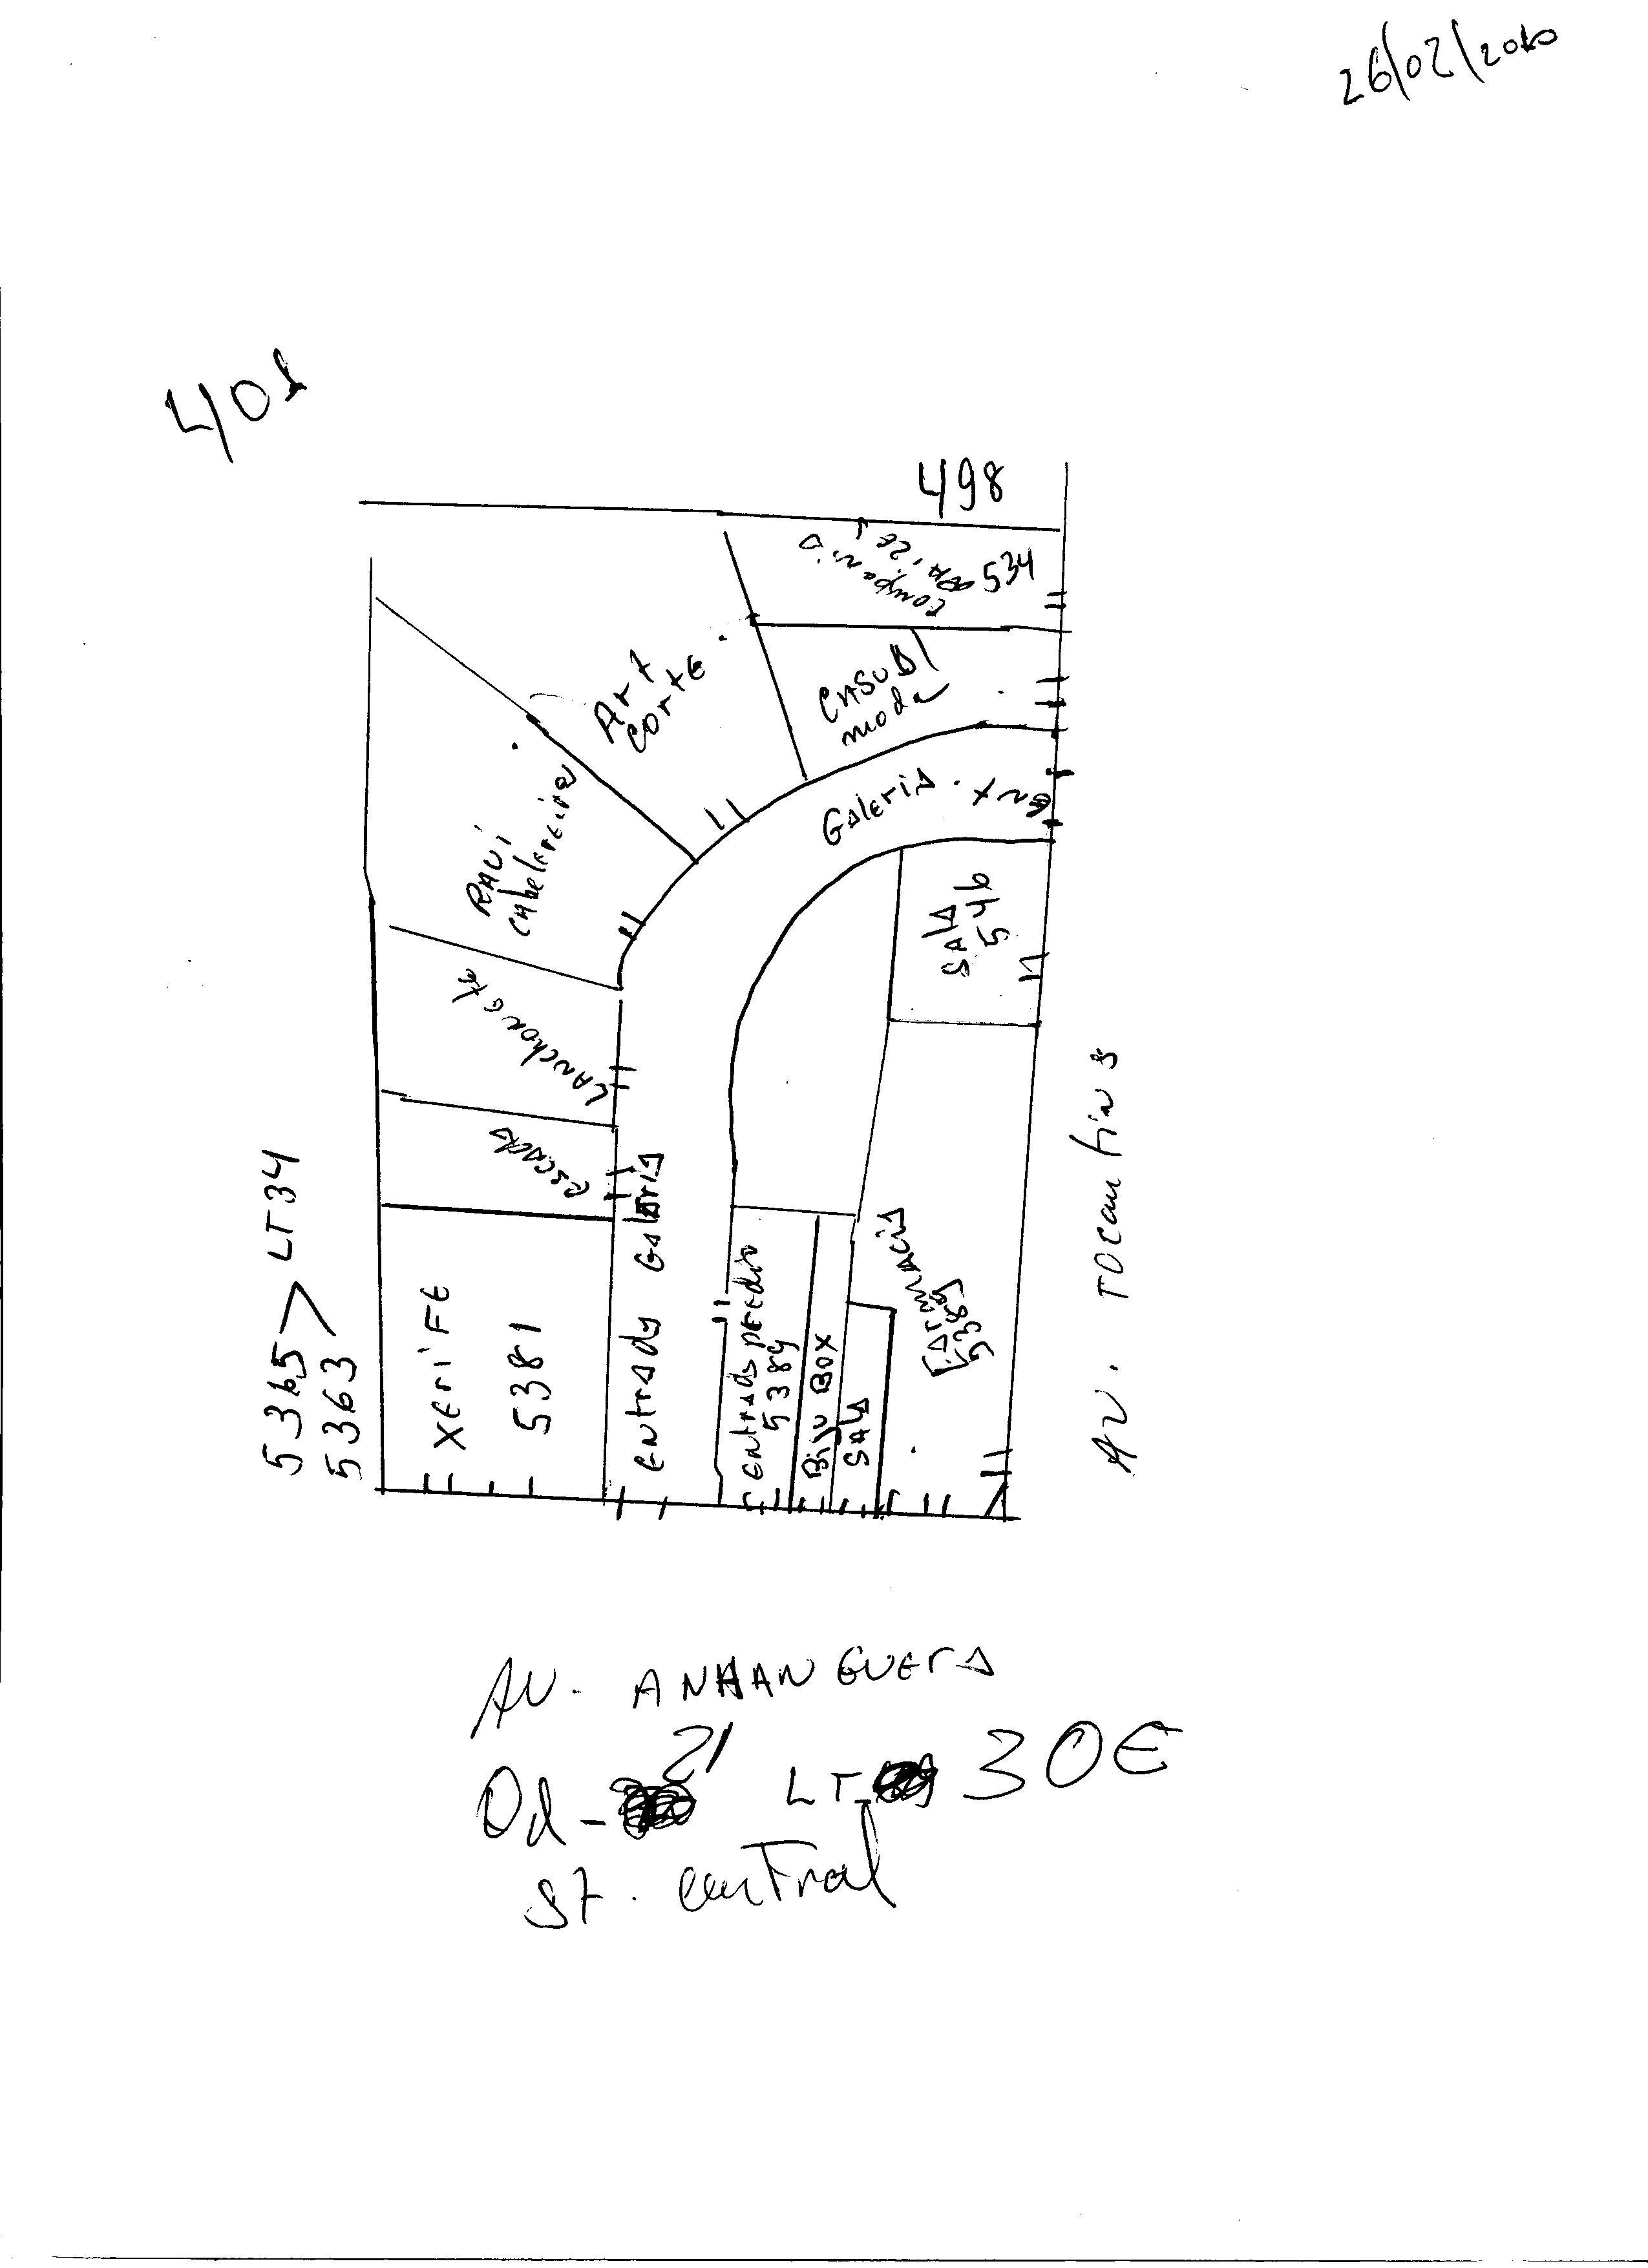 26/02/2010
401
498
534
Art
corte
CASUAL
moda
Galeria
Ent
RAVI
cabeleireira
SALA
546
LANchonete
escada
5365 > LT34
5363
XEriFE
5381
Entrada Galeria
Entrada predio
5389
Biju Box
SALA
Farmacia
5389
AV. TOCantins
AV. ANHANGUERA
Qd - 21 LT 30E
ST. central